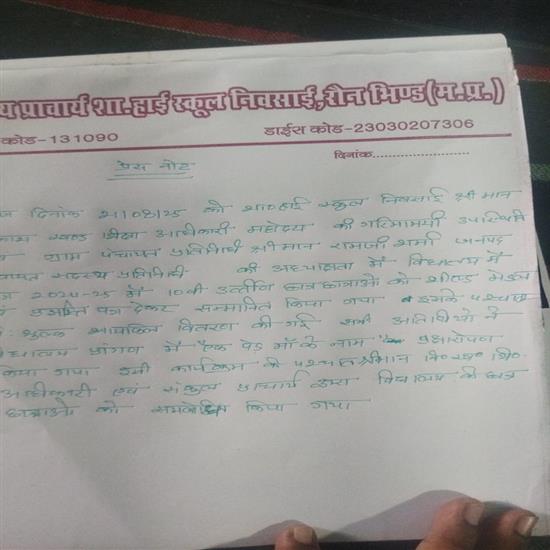 य प्राचार्य शा. हाई स्कूल निवसाई, रौन भिण्ड (म.प्र.)
कोड-131090 डाईस कोड-23030207306
दिनांक........................
प्रेस नोट
दिनांक 2/08/25 को शा0 हाई स्कूल निवसाई श्री मान
खण्ड शिक्षा अधिकारी महोदय की गरिमामयी उपस्थिति
ग्राम पंचायत प्रतिनिधि श्री मान रामजी शर्मा जनपद
सदस्य प्रतिनिधी की अध्यक्षता में विद्यालय में
2024-25 में 10वी उत्तीर्ण छात्र छात्राओ को शील्ड मेडल
प्रशस्ति पत्र देकर सम्मानित किया गया इसके पश्चात
शुल्क सायकिल वितरण की गई सभी अतिथीओ ने
प्रांगण में एक पेड़ माँ के नाम वृक्षारोपण
किया गया इसी कार्यक्रम के पश्चात श्रीमान वि0 ख0 शि0
अधीकारी एवं संकुल प्राचार्य द्वारा विद्यालय की छात्र
छात्राओ को किया गया